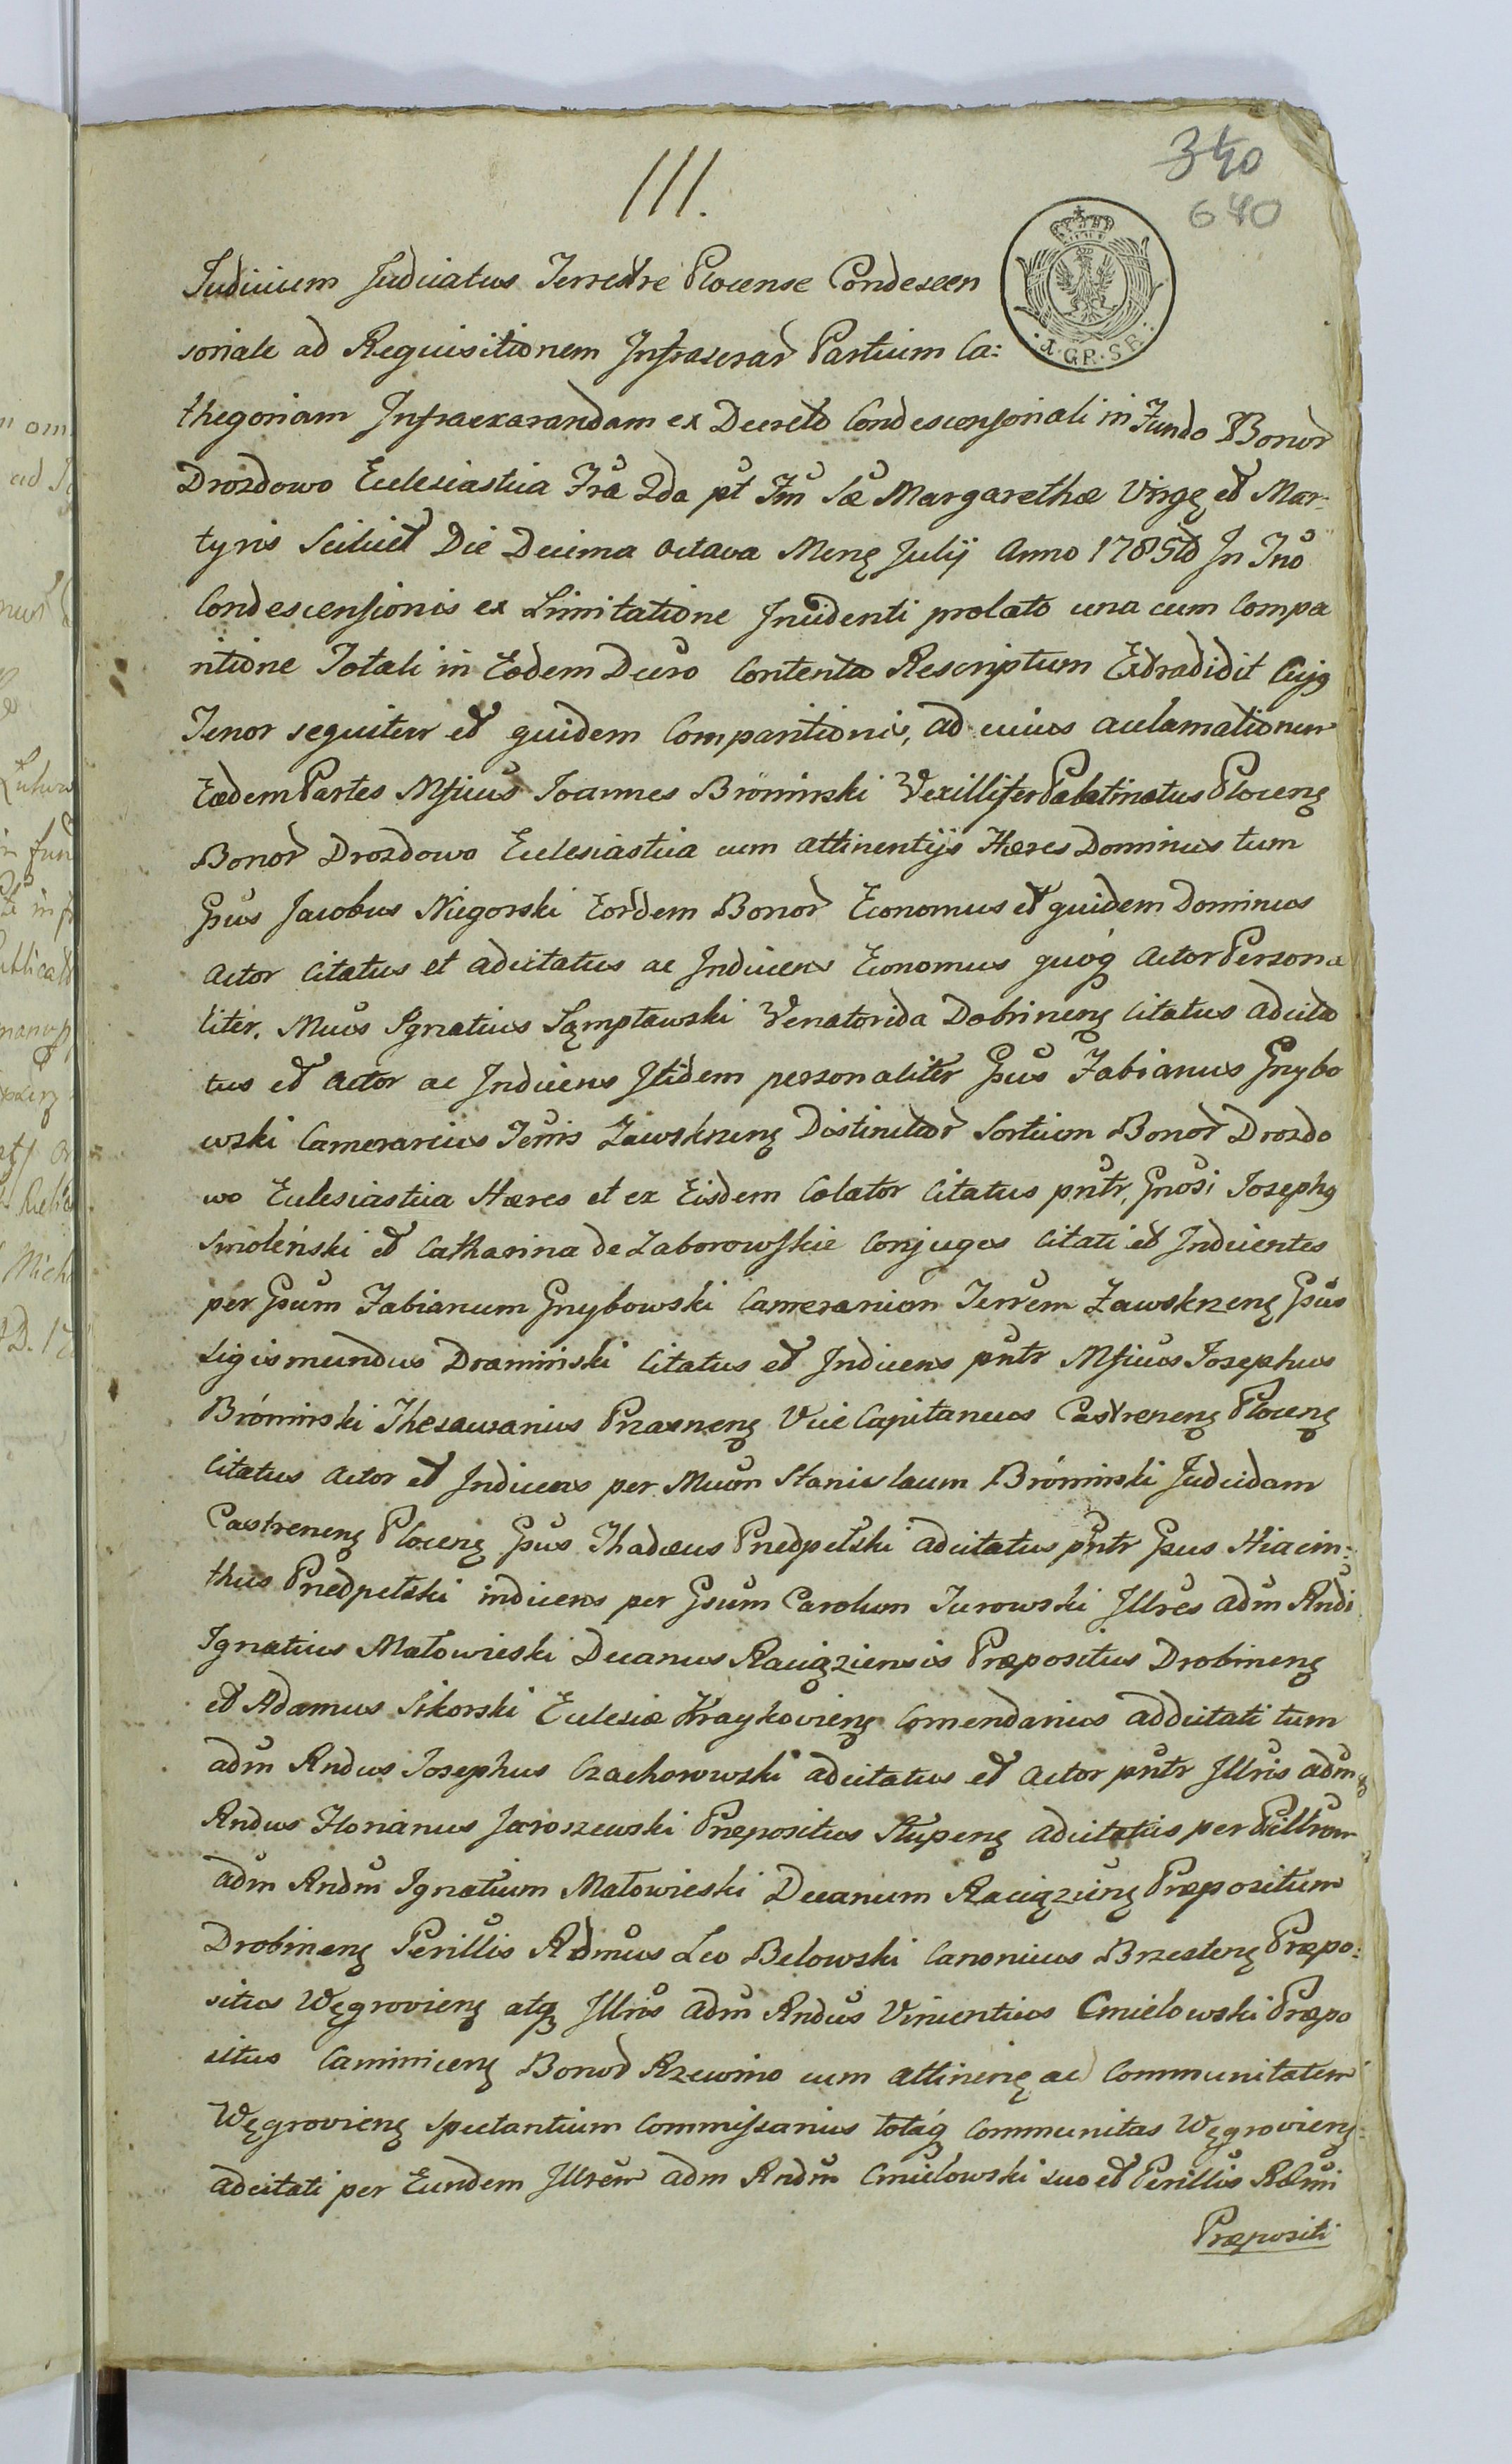 340
640
III.
Judicium Judicatus Terrestre Plocense Condescen
soriale ad Requisitionem Infrascrar Partium Ca:
thegoriam Infraexarandam ex Decreto Condescensoriali in Fundo Bonor
Drozdowo Ecclesiastica Fra 2da pt Fm Sæ Margarethæ Virgę et Mar-
tyris Scilicet Die Decima Octava Menę Julij Anno 1785to In Tno
Condescensionis ex Limitatione Incidenti prolato una cum Compa
ritione Totali in Eodem Decro Contenta Rescriptum Extradidit Cujg
Tenor sequitur et quidem Comparitionis, ad cuius aclamationem
Eædem Partes Mficus Joannes Bromirski Vexillifer Palatinatus Plocenę
Bonor Drozdowo Ecclesiastica cum attinentijs Hæres Dominus tum
Gsus Jacobus Niegorski Eordem Bonor Economus et quidem Dominus
Actor Citatus et adcitatus ac Inducens Economus quoq Actor Persona
liter. Mucs Ignatius Sęmpławski Venatorida Dobrinenę Citatus adcita
tus et Actor ac Inducens Itidem personaliter Gsus Fabianus Gnybo
wski Camerarius Terris Zawskrzenę Distinctior Sortium Bonor Drozdo
wo Ecclesiastica Hæres et ex Eisdem Colator Citatus pntr, Gnosi Josephg
Smoleński et Catharina de Zaborowskie Conjuges Citati et Inducentes
per Gsum Fabianum Gnybowski Camerarium Terrem Zawskrzenę Gsus
Sigismundus Dramiński Citatus et Inducens pntr Mficus Josephus
Brómirski Thesaurarius Praznenę Vice Capitaneus Castrenenę Plocenę
Citatus Actor et Inducens per Mucm Stanislaum Brómirski Judicidam
Castrenenę Plocenę Gsus Thadæus Przedpełski adcitatus pntr Gsus Hiacin:
thus Przedpełski inducens per Gsum Carolum Turowski Illres adm Rndi
Ignatius Małowieski Decanus Raciążiensis Præpositus Drobinenę
et Adamus Sikorski Eclesiæ Kraykovienę Comendarius addcitati tum
adm Rndus Josephus Czachorowski adcitatus et Actor pntr Illris adm
Rndus Florianus Jaroszewski Præpositus Słupenę adcitatus per Pillrem
adm Rndm Ignatium Małowieski Decanum Raciążienę Præpositum
Drobinenę Perillis Rdmus Leo Belowski Canonicus Brzestenę Præpo:
situs Węgrovienę atq Illris adm Rndus Vincentius Cmielowski Præpo
situs Caminicenę Bonor Rzewino cum attinenę ad Communitatem
Węgrovienę Spectantium Commissarius totaq Communitas Węgrovienę
adcitati per Eundem Illrem adm Rndm Cmielowski suo et Perillis Rdmi
Præpositi